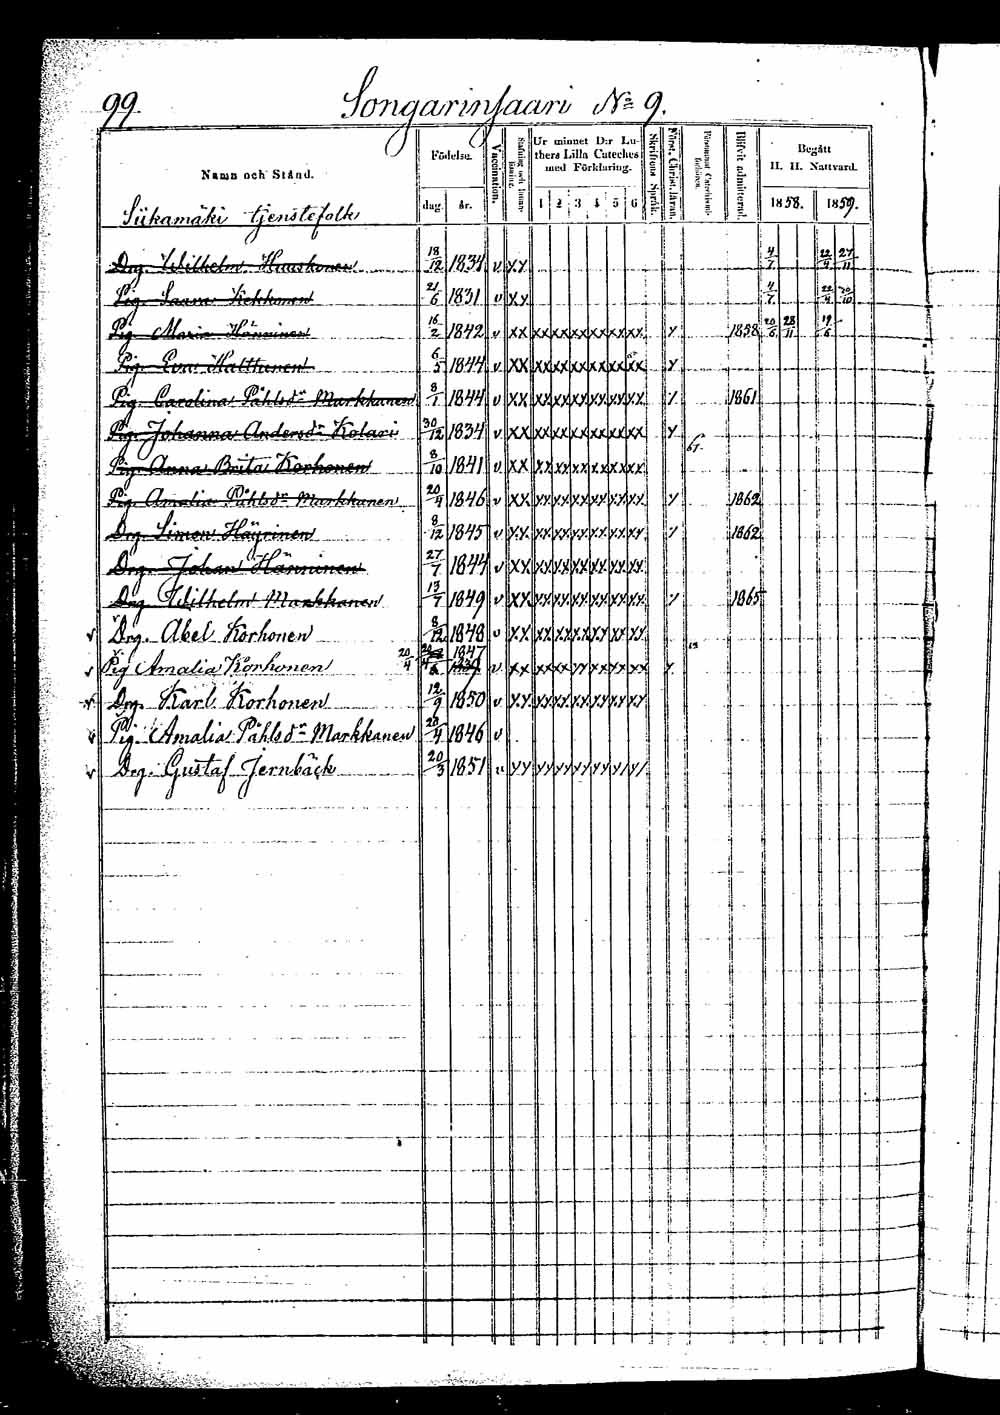 99. Songarinsaari No 9.
Namn och Stånd. Födelse. dag. år. Vaccination. Stafning och Innanläsning. Ur minnet D:r Luthers Lilla Cateches med Förklaring. 1 2 3 4 5 6 Skriftens Språk. Först. Christ. läran. Blifvit admitterad. Begått H. H. Nattvard. 1858. 1859.
Siikamäki tjenstefolk
Drg. Wilhelm Huuskonen 18/12 1834 v xx 4/7 22/4 27/11
Pig. Saara Kekkonen 21/6 1831 v xx 4/7 22/4 30/10
Pig. Maria Hänninen 16/2 1842 v xx xx xx xx xx xx xx x 1858 20/6 28/11 19/6
Pig. Eva Matthunen 6/5 1844 v xx xx xx xx xx xx xx x
Pig. Carolina Påhlsdr Markkanen 8/1 1844 v xx xx xx xx xx xx xx x 1861
Pig. Johanna Andersdr Kolari 30/12 1834 v xx xx xx xx xx xx xx x
Pig. Anna Brita Korhonen 8/10 1841 v xx xx xx xx xx xx xx
Pig. Amalia Påhlsdr Markkanen 20/4 1846 v xx xx xx xx xx xx xx x 1862
Drg. Simon Häyrinen 8/12 1845 v xx xx xx xx xx xx xx x 1862
Drg. Johan Hänninen 27/7 1844 v xx xx xx xx xx xx xx
Drg. Wilhelm Markkanen 13/7 1849 v xx xx xx xx xx xx xx x 1865
v Drg. Abel Korhonen 8/12 1848 v xx xx xx xx xx xx xx
v Pig Amalia Korhonen 20/4 1847 v xx xx xx xx xx xx xx x
v Drg. Karl Korhonen 12/9 1850 v xx xx xx xx xx xx xx
v Pig. Amalia Påhlsdr Markkanen 20/4 1846 v
v Drg. Gustaf Jernbäck 20/3 1851 v xx xx xx xx xx x/ x/